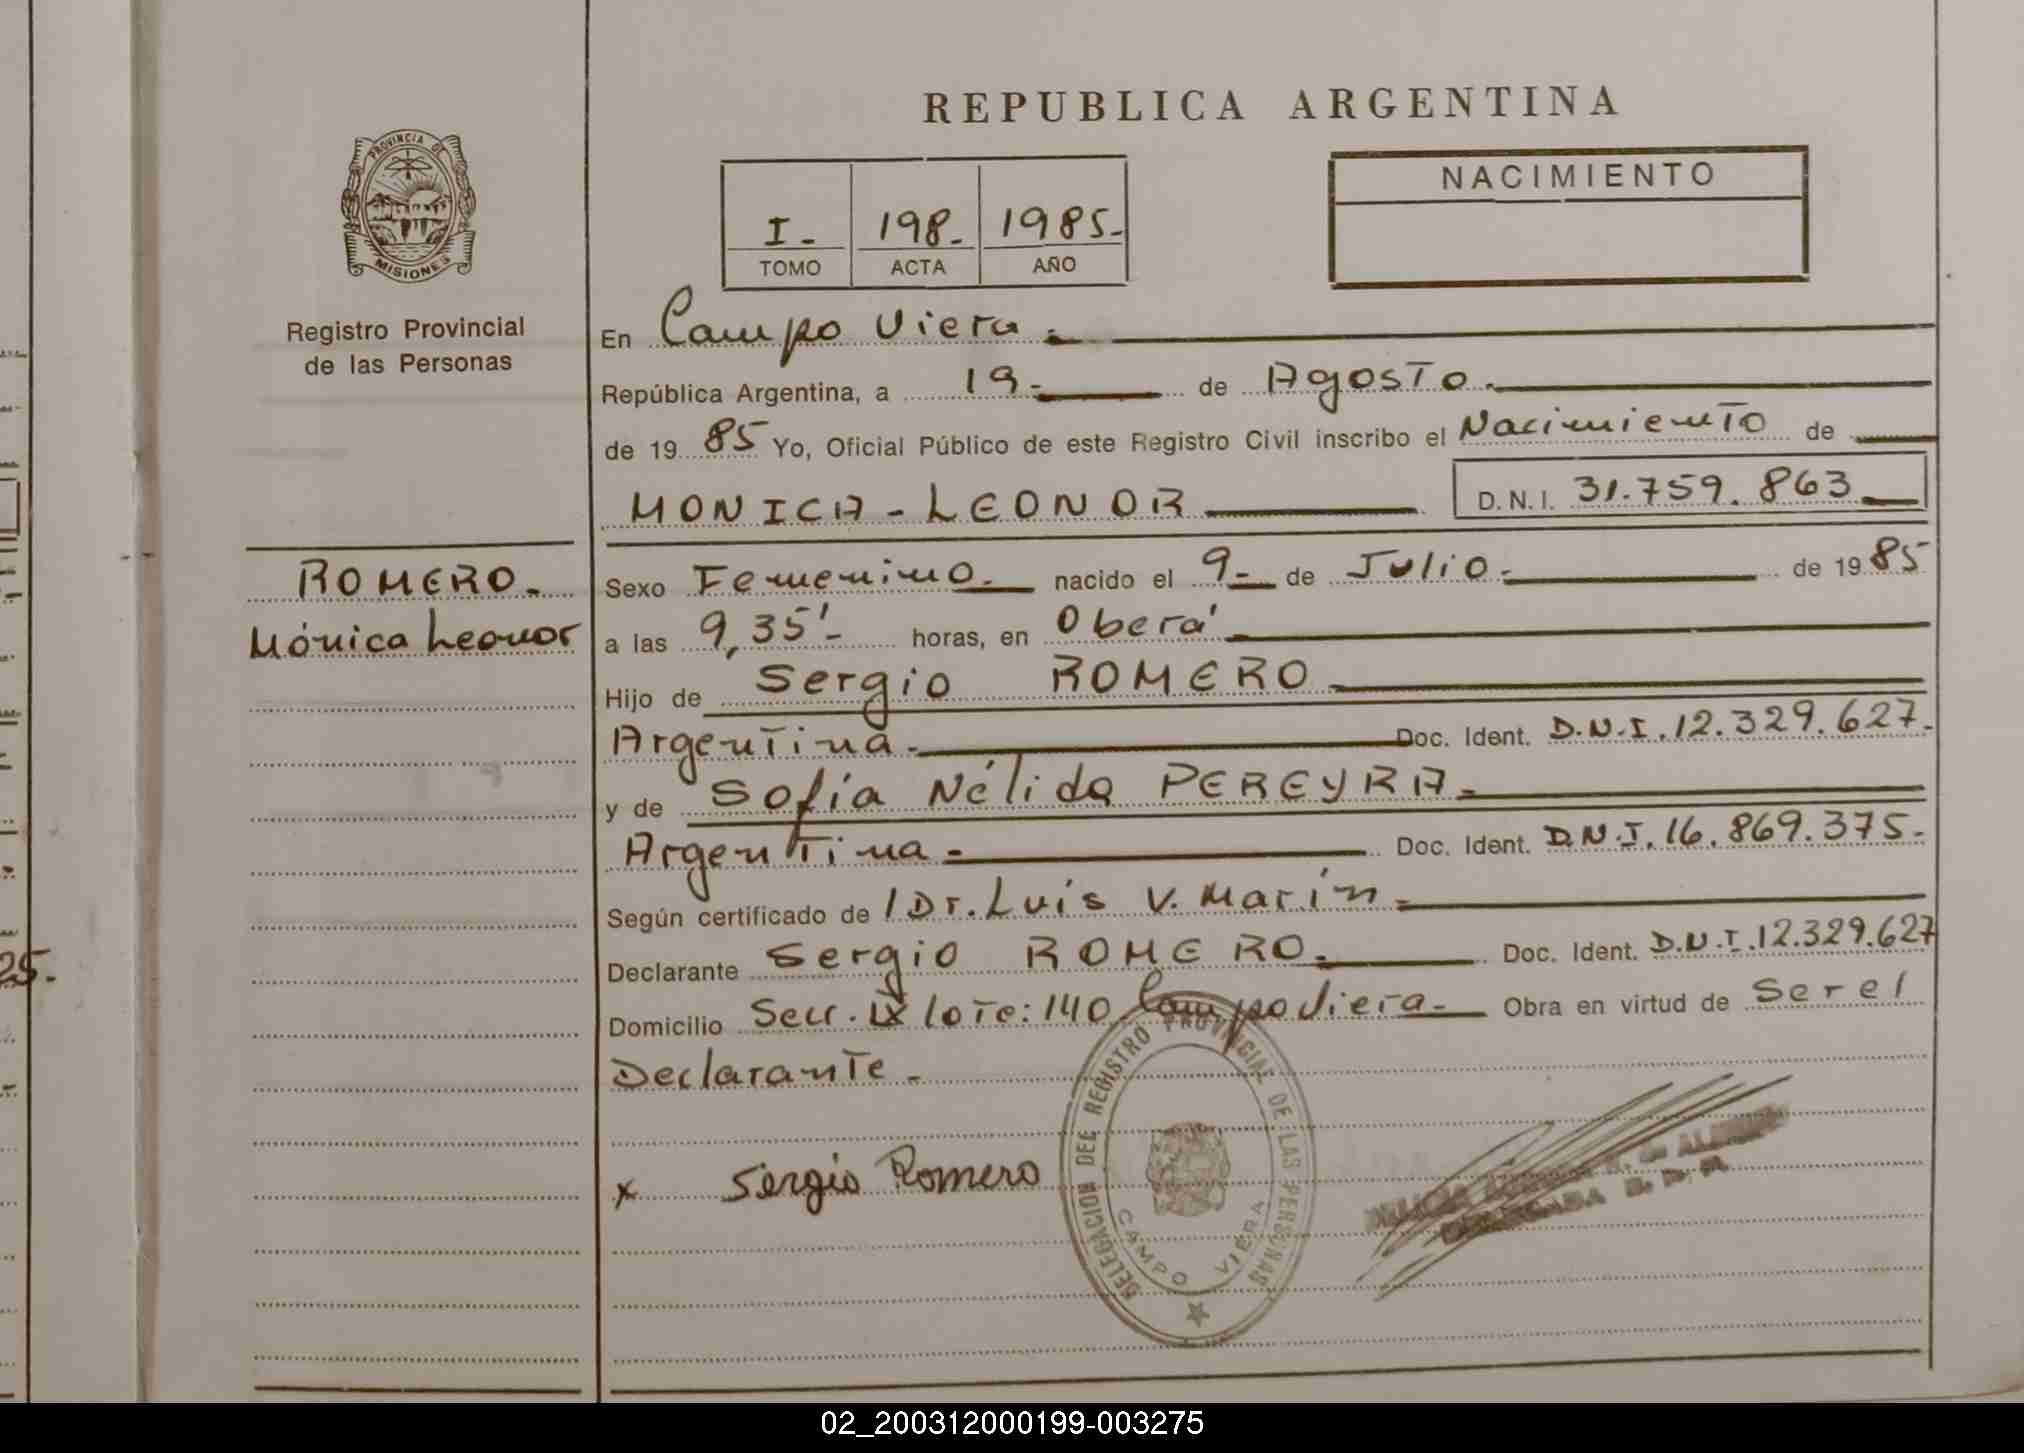 REPUBLICA ARGENTINA
PROVINCIA DE
MISIONES
Registro Provincial
de las Personas
I.- 198.- 1985.-
TOMO ACTA AÑO
NACIMIENTO
En Campo Viera.-
República Argentina, a 19.- de Agosto.-
de 1985 Yo, Oficial Público de este Registro Civil inscribo el Nacimiento de
MONICA - LEONOR D.N.I. 31.759.863
ROMERO.-
Mónica Leonor
Sexo Femenino.- nacido el 9.- de Julio.- de 1985
a las 9,35'- horas, en Oberá
Hijo de Sergio ROMERO
Argentina.- Doc. Ident. D.N.I. 12.329.627.-
y de Sofía Nélida PEREYRA.-
Argentina- Doc. Ident. D.N.I. 16.869.375.-
Según certificado de /Dr. Luis V. Marín.-
Declarante Sergio ROMERO.- Doc. Ident. D.N.I. 12.329.627
Domicilio Secc. IX lote: 140 Campo Viera- Obra en virtud de Ser el
Declarante.-
x Sergio Romero
DELEGACION DEL REGISTRO PROVINCIAL DE LAS PERSONAS
CAMPO VIERA
25.
02_200312000199-003275